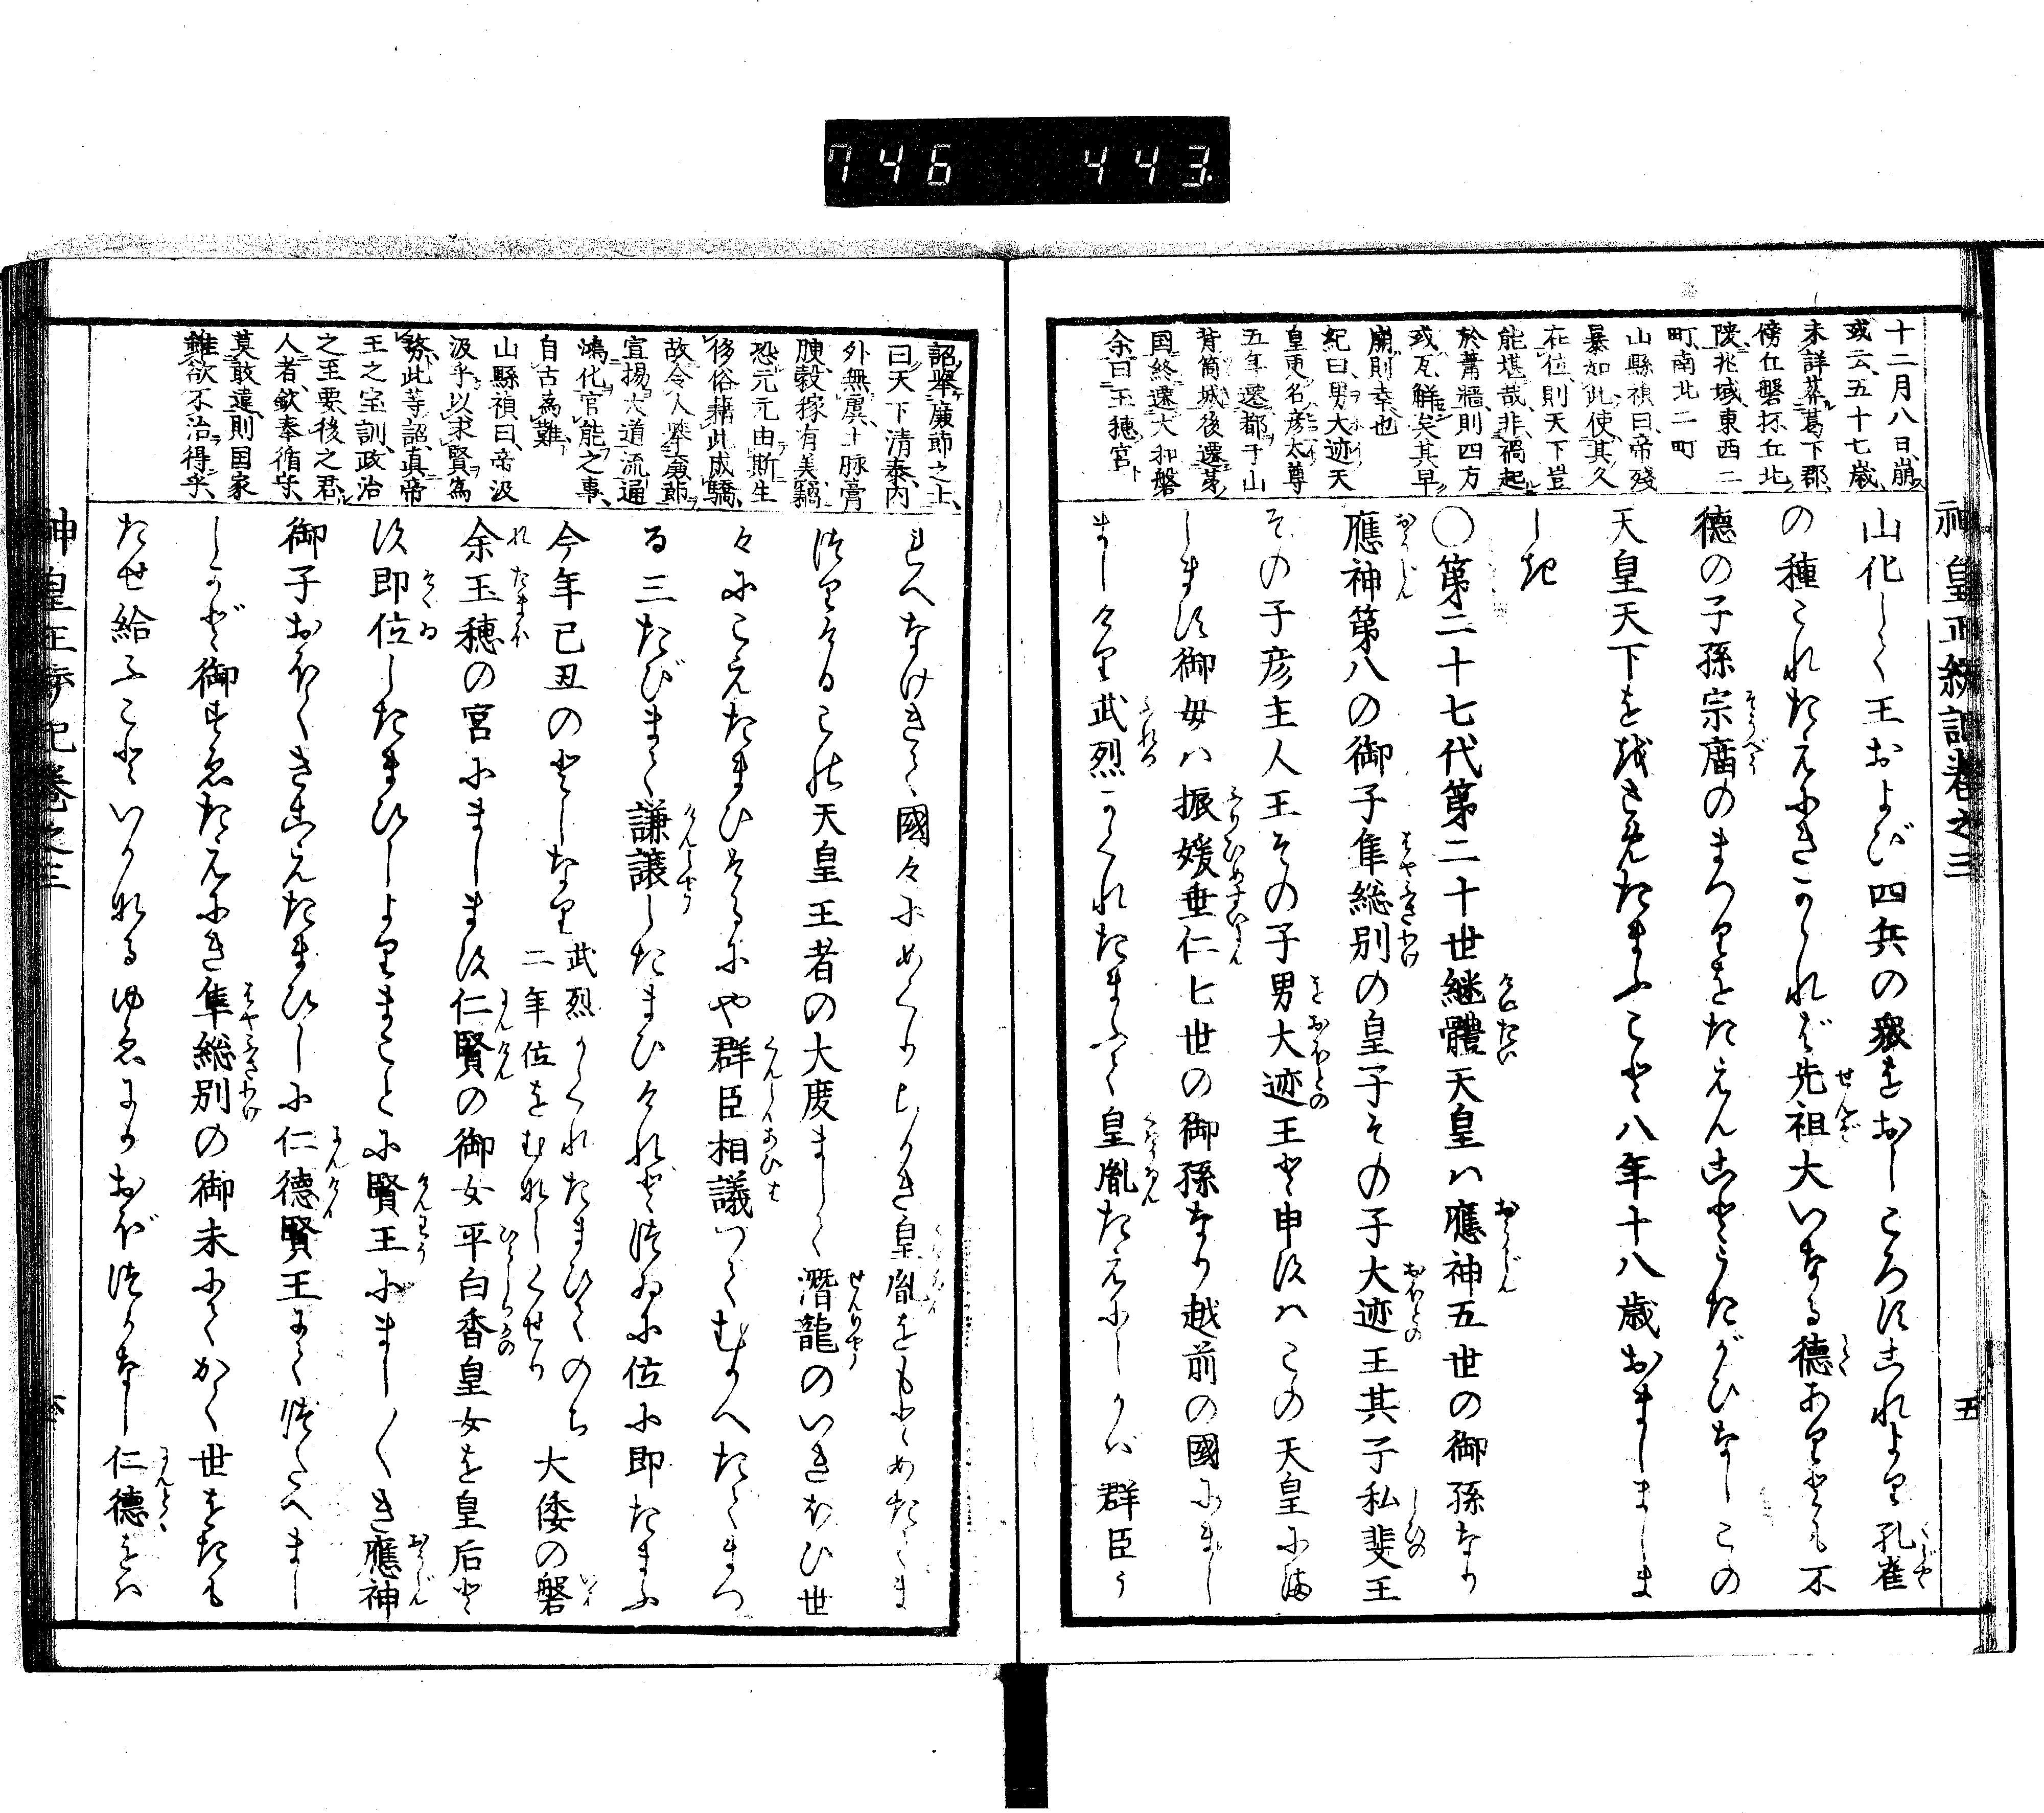 746 443.
神皇正統記巻之三
五
十二月八日、崩
或云、五十七歳、
未詳葬葛下郡、
傍丘磐抔丘北
陵兆域、東西二
町、南北二町
山縣禎曰、帝殘
暴如此、使其久
在位、則天下豈
能堪哉、非禍起
於蕭牆、則四方
或瓦解矣、其早
崩、則幸也
紀曰、男大迹天
皇更名彦太尊
五年遷都于山
背筒城後遷弟
國終遷大和磐
余曰玉穂宮
山化して王および四兵の衆をおしころすこれより孔雀
の種これたえにきかゝれば先祖大いなる徳ありとも不
徳の子孫宗廟のまつりをたえんことうたがひなしこの
天皇天下を治させたまふこと八年十八歳おましまし
しき
〇第二十七代第二十世継體天皇ハ應神五世の御孫なり
應神第八の御子隼総別の皇子その子大迹王其子私斐王
その子彦主人王その子男大迹王と申すハこの天皇にま
しますす御母ハ振媛垂仁七世の御孫なり越前の國にまし
ましけり武烈かくれたまふて皇胤たえにしかバ群臣う
詔擧廉節之士、
曰天下清泰、内
外無虞、土脉膏
腴、穀稼有美、竊
恐元元由斯生
俗、藉此成驕、
故令人擧廉節
宣揚大道流通
鴻化官能之事、
自古為難
山縣禎曰、帝汲
汲乎以求賢為
務、此等詔、真帝
王之宝訓、政治
之至要、後之君
人者、欽奉循守、
莫敢違、則国家
雖欲不治得乎、
れへなげきて國々にめぐりちかき皇胤をもとめたてま
つりけるこの天皇王者の大度ましして潜龍のいきほひ世
々にこえたまひけるにや群臣相議つてむかへたてまつ
る三たびまて謙譲したまひけれどつゐに位に即たまふ
今年己丑のとしなり
武烈かくれたまひてのち
二年位をむなしくせり
大倭の磐
余玉穂の宮にまします仁賢の御女平白香皇女を皇后と
す即位したまひしよりまことに賢王にましましき應神
御子おほくきこえたまひしに仁徳賢王にてつたへまし
しかど御すゑたえにき隼総別の御末にてかく世をたも
たせ給ふことといかなるゆゑにかおぼつかなし仁徳をハ
神皇正統記巻之三